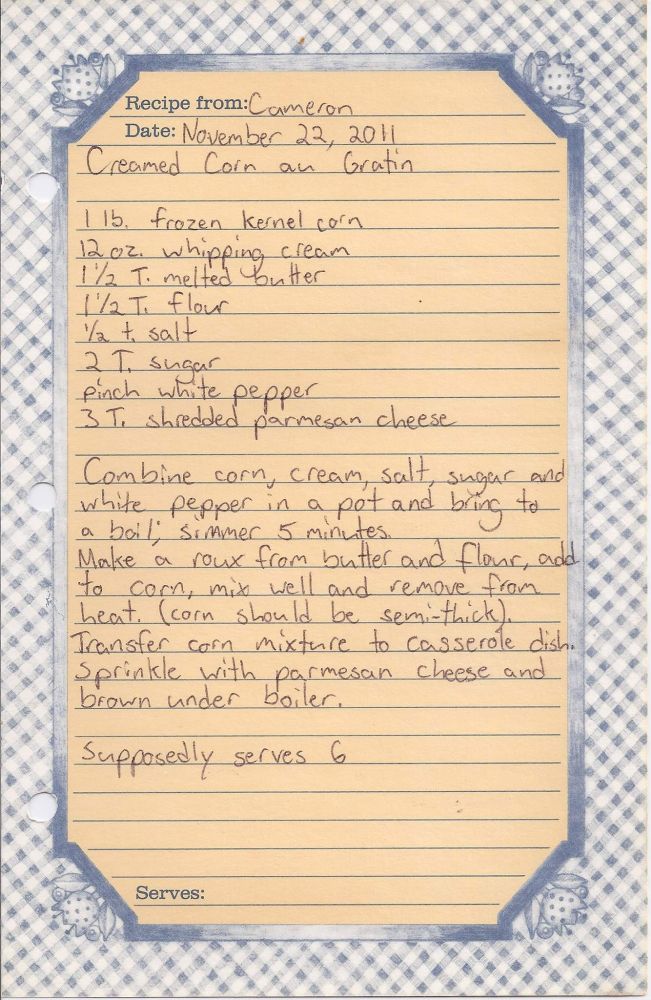 Recipe from: Cameron
Date: November 22, 2011
Creamed Corn au Gratin
1 lb. frozen kernel corn
12 oz. whipping cream
1 1/2 T. melted butter
1 1/2 T. flour
1/2 t. salt
2 T. sugar
pinch white pepper
3 T. shredded parmesan cheese
Combine corn, cream, salt, sugar and
white pepper in a pot and bring to
a boil; simmer 5 minutes.
Make a roux from butter and flour, add
to corn, mix well and remove from
heat. (corn should be semi-thick).
Transfer corn mixture to casserole dish.
Sprinkle with parmesan cheese and
brown under boiler.
Supposedly serves 6
Serves: